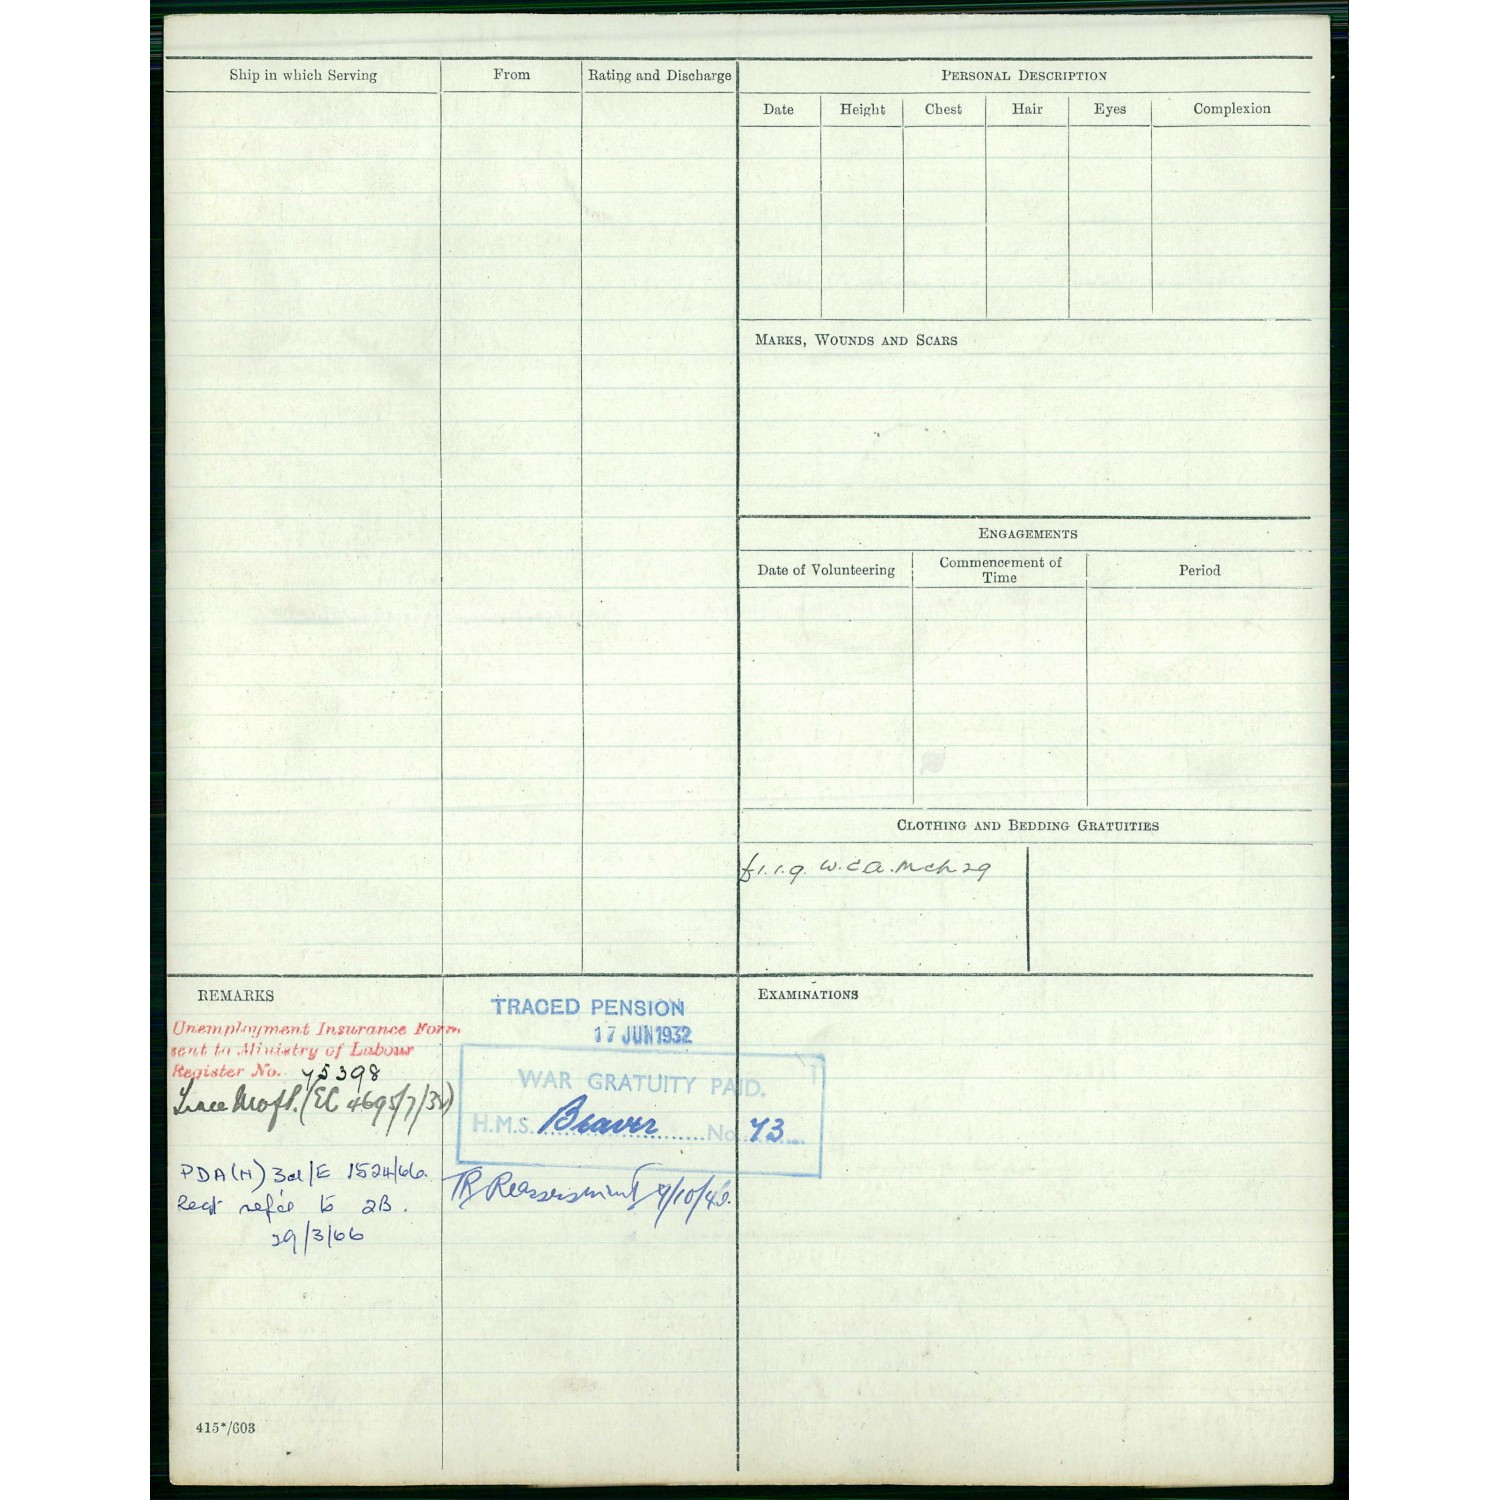 Ship in which Serving
From
Rating and Discharge
PERSONAL DESCRIPTION
Date
Height
Chest
Hair
Eyes
Complexion
MARKS, WOUNDS AND SCARS
ENGAGEMENTS
Date of Volunteering
Commencement of
Time
Period
CLOTHING AND BEDDING GRATUITIES
£1.1.9. W.C.A. Mch 29
REMARKS
Unemployment Insurance Form
sent to Ministry of Labour
Register No. Y5398
Trace (EC 4695/7/32)
PDA(N) 3d/E 1524/66.
refd to 2B.
29/3/66
TRACED PENSION
17 JUN 1932
WAR GRATUITY PAID.
H.M.S. Beaver No. 73
Reassessment
EXAMINATIONS
415*/603